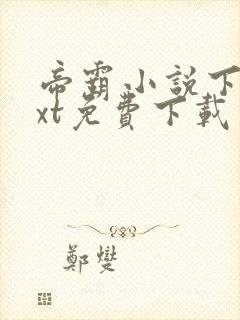 帝霸小説下
xt免費下載
鄭燮